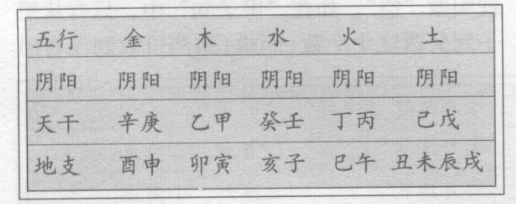 五行 金 木 水 火 土
阴阳 阴阳 阴阳 阴阳 阴阳 阴阳
天干 辛庚 乙甲 癸壬 丁丙 己戊
地支 酉申 卯寅 亥子 巳午 丑未辰戌